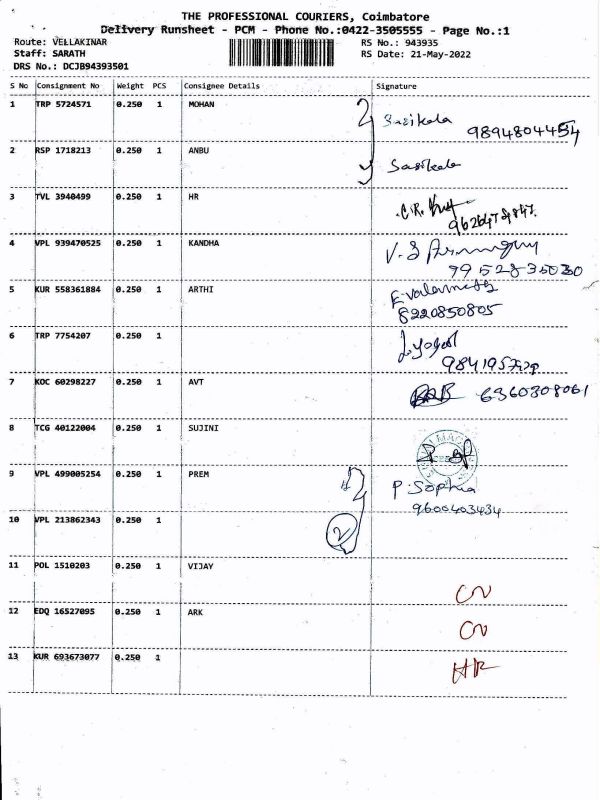 THE PROFESSIONAL COURIERS, Coimbatore
Delivery Runsheet - PCM - Phone No.:0422-3505555 - Page No.:1
Route: VELLAKINAR RS No.: 943935
Staff: SARATH RS Date: 21-May-2022
DRS No.: DCJB94393501
S No Consignment No Weight PCS Consignee Details Signature
1 TRP 5724571 0.250 1 MOHAN
Sasikala
9894804454
2 RSP 1718213 0.250 1 ANBU
Sasikala
3 TVL 3940499 0.250 1 HR
C.R.
4 VPL 939470525 0.250 1 KANDHA
V.S
5 KUR 558361884 0.250 1 ARTHI
8220850805
6 TRP 7754207 0.250 1
7 KOC 60298227 0.250 1 AVT
6360308061
8 TCG 40122004 0.250 1 SUJINI
9 VPL 499005254 0.250 1 PREM
P. Sophia
9600403434
10 VPL 213862343 0.250 1
2
11 POL 1510203 0.250 1 VIJAY
CN
12 EDQ 16527095 0.250 1 ARK
CN
13 KUR 693673077 0.250 1
HR